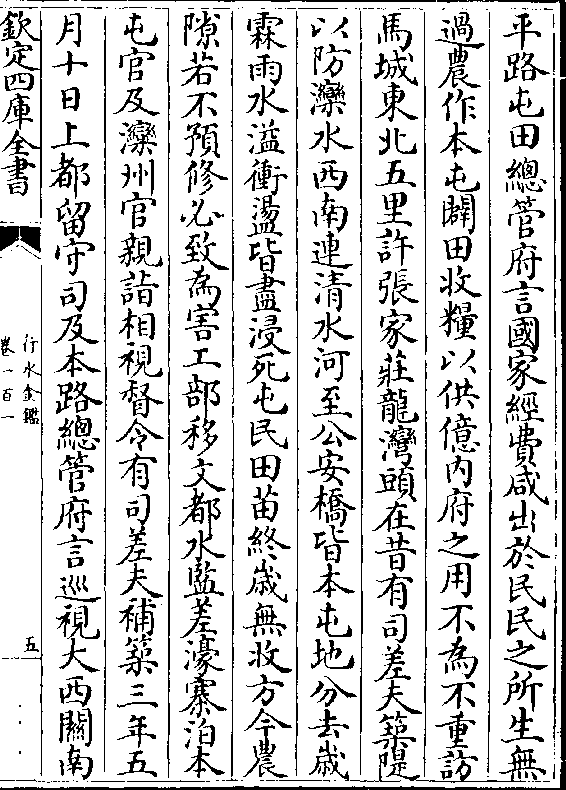 平路屯田總管府言國家經費咸出於民民之所生無
過農作本屯闢田收糧以供億内府之用不為不重訪
馬城東北五里許張家莊龍灣頭在昔有司差夫築隄
以防灤水西南連清水河至公安橋皆本屯地分去歲
霖雨水溢衝盪皆盡浸死屯民田苗終歲無收方今農
隙若不預修必致為害工部移文都水監差濠寨洎本
屯官及灤州官親詣相視督令有司差夫補築三年五
月十日上都留守司及本路總管府言巡視大西關南
欽定四庫全書
行水金鑑
卷一百一
五